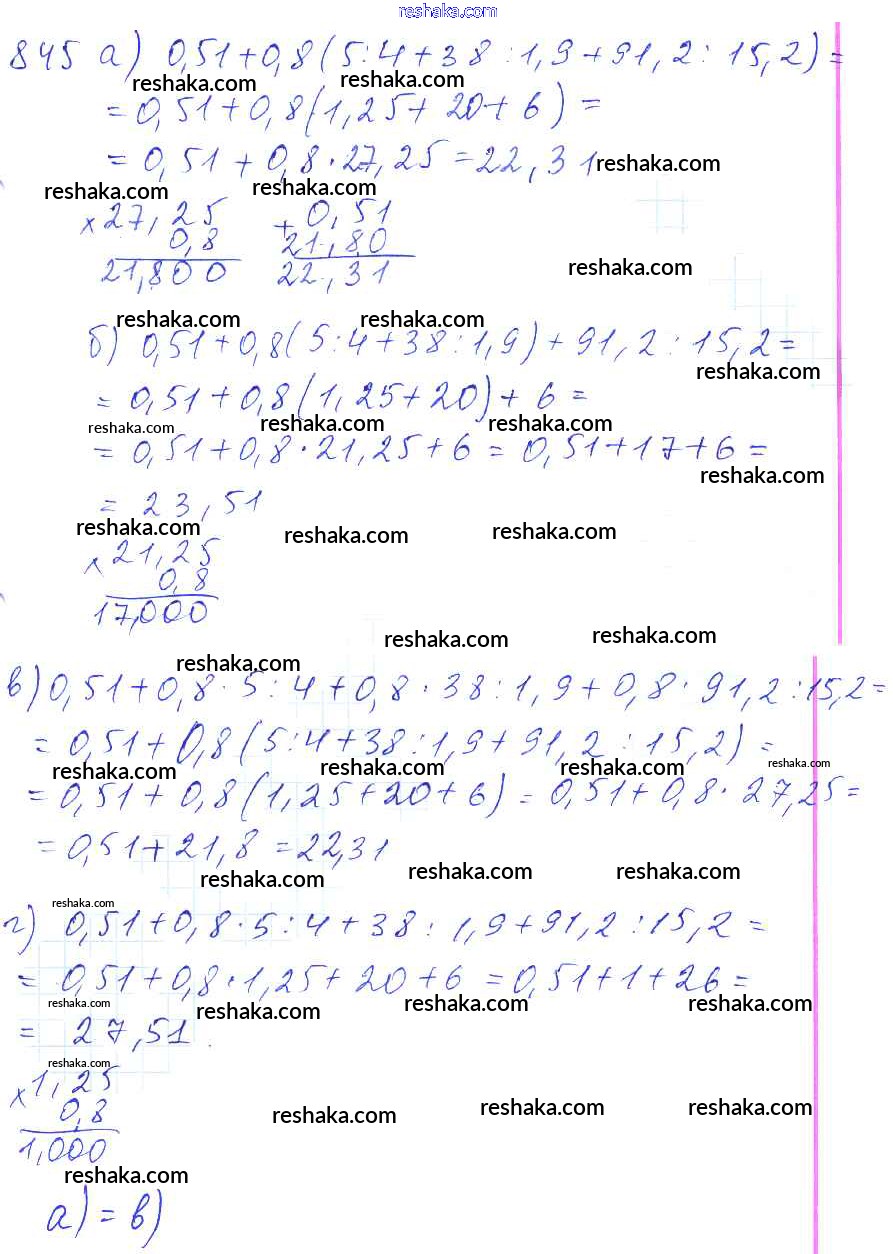 reshaka.com
845 а) 0,51+0,8(5:4+38:1,9+91,2:15,2)=
reshaka.com reshaka.com
=0,51+0,8(1,25+20+6)=
=0,51+0,8·27,25=22,31 reshaka.com
reshaka.com reshaka.com
×27,25 +0,51
0,8 21,80
21,800 22,31
reshaka.com
reshaka.com reshaka.com
б) 0,51+0,8(5:4+38:1,9)+91,2:15,2=
reshaka.com
=0,51+0,8(1,25+20)+6=
reshaka.com reshaka.com reshaka.com
=0,51+0,8·21,25+6=0,51+17+6=
reshaka.com
=23,51
reshaka.com reshaka.com reshaka.com
×21,25
0,8
17,000
reshaka.com reshaka.com
reshaka.com
в) 0,51+0,8·5:4+0,8·38:1,9+0,8·91,2:15,2=
=0,51+0,8(5:4+38:1,9+91,2:15,2)=
reshaka.com reshaka.com reshaka.com reshaka.com
=0,51+0,8(1,25+20+6)=0,51+0,8·27,25=
=0,51+21,8=22,31
reshaka.com reshaka.com reshaka.com
reshaka.com
г) 0,51+0,8·5:4+38:1,9+91,2:15,2=
=0,51+0,8·1,25+20+6=0,51+1+26=
reshaka.com reshaka.com reshaka.com reshaka.com
=27,51
reshaka.com
×1,25
0,8
1,000
reshaka.com reshaka.com reshaka.com
reshaka.com
а)=в)